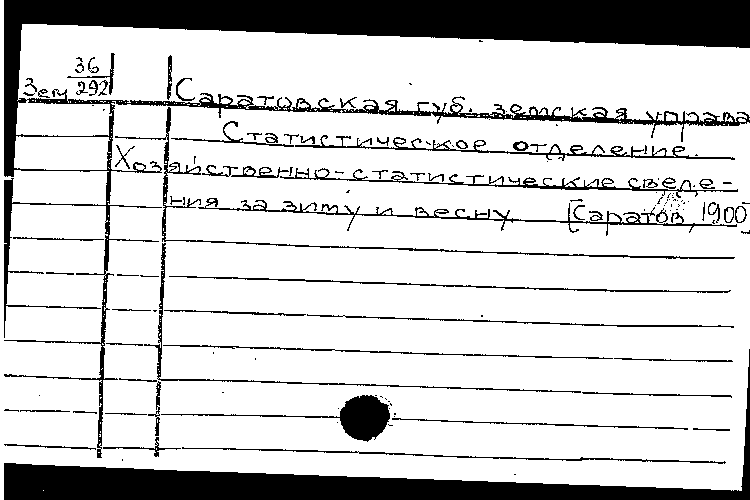 36
Зем 292
Саратовская губ. земская управа
Статистическое отделение.
Хозяйственно-статистические сведе-
ния за зиму и весну [Саратов, 1900]